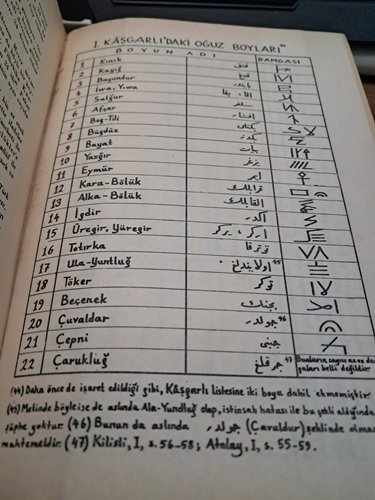 I. KÂŞGARLI'DAKİ OĞUZ BOYLARI
BOYUN ADI DAMGASI
1 Kınık قنق
2 Kayığ قيغ
3 Bayundur بايندر
4 Iwa, Yıwa افا، يفا
5 Salğur سلغر
6 Afşar افشار
7 Beg-Tili بكتلى
8 Bügdüz بكدز
9 Bayat بيات
10 Yazğır يزغر
11 Eymür ايمر
12 Kara-Bölük قرابلك
13 Alka-Bölük القابلك
14 İgdir اكدر
15 Üregir, Yüregir اركر، يركر
16 Totırka توترقا
17 Ula-Yuntluğ اولايندلغ 45
18 Töker توكر
19 Beçenek بجنك
20 Çuvaldar جولدر 46
21 Çepni جبنى
22 Çarukluğ جرقلغ 47 Bunların sayısı az ve dam-
gaları belli değildir.
(44) Daha önce de işaret edildiği gibi, Kâşgarlı listesine iki boyu dahil etmemiştir.
(45) Metinde böyle ise de aslında Ala-Yundluğ olup, istinsah hatası ile bu şekli aldığında
şüphe yoktur. (46) Bunun da aslında (Çavuldur) şeklinde olması
(47) Kilisli, I, s. 56-58; Atalay, I, s. 55-59.